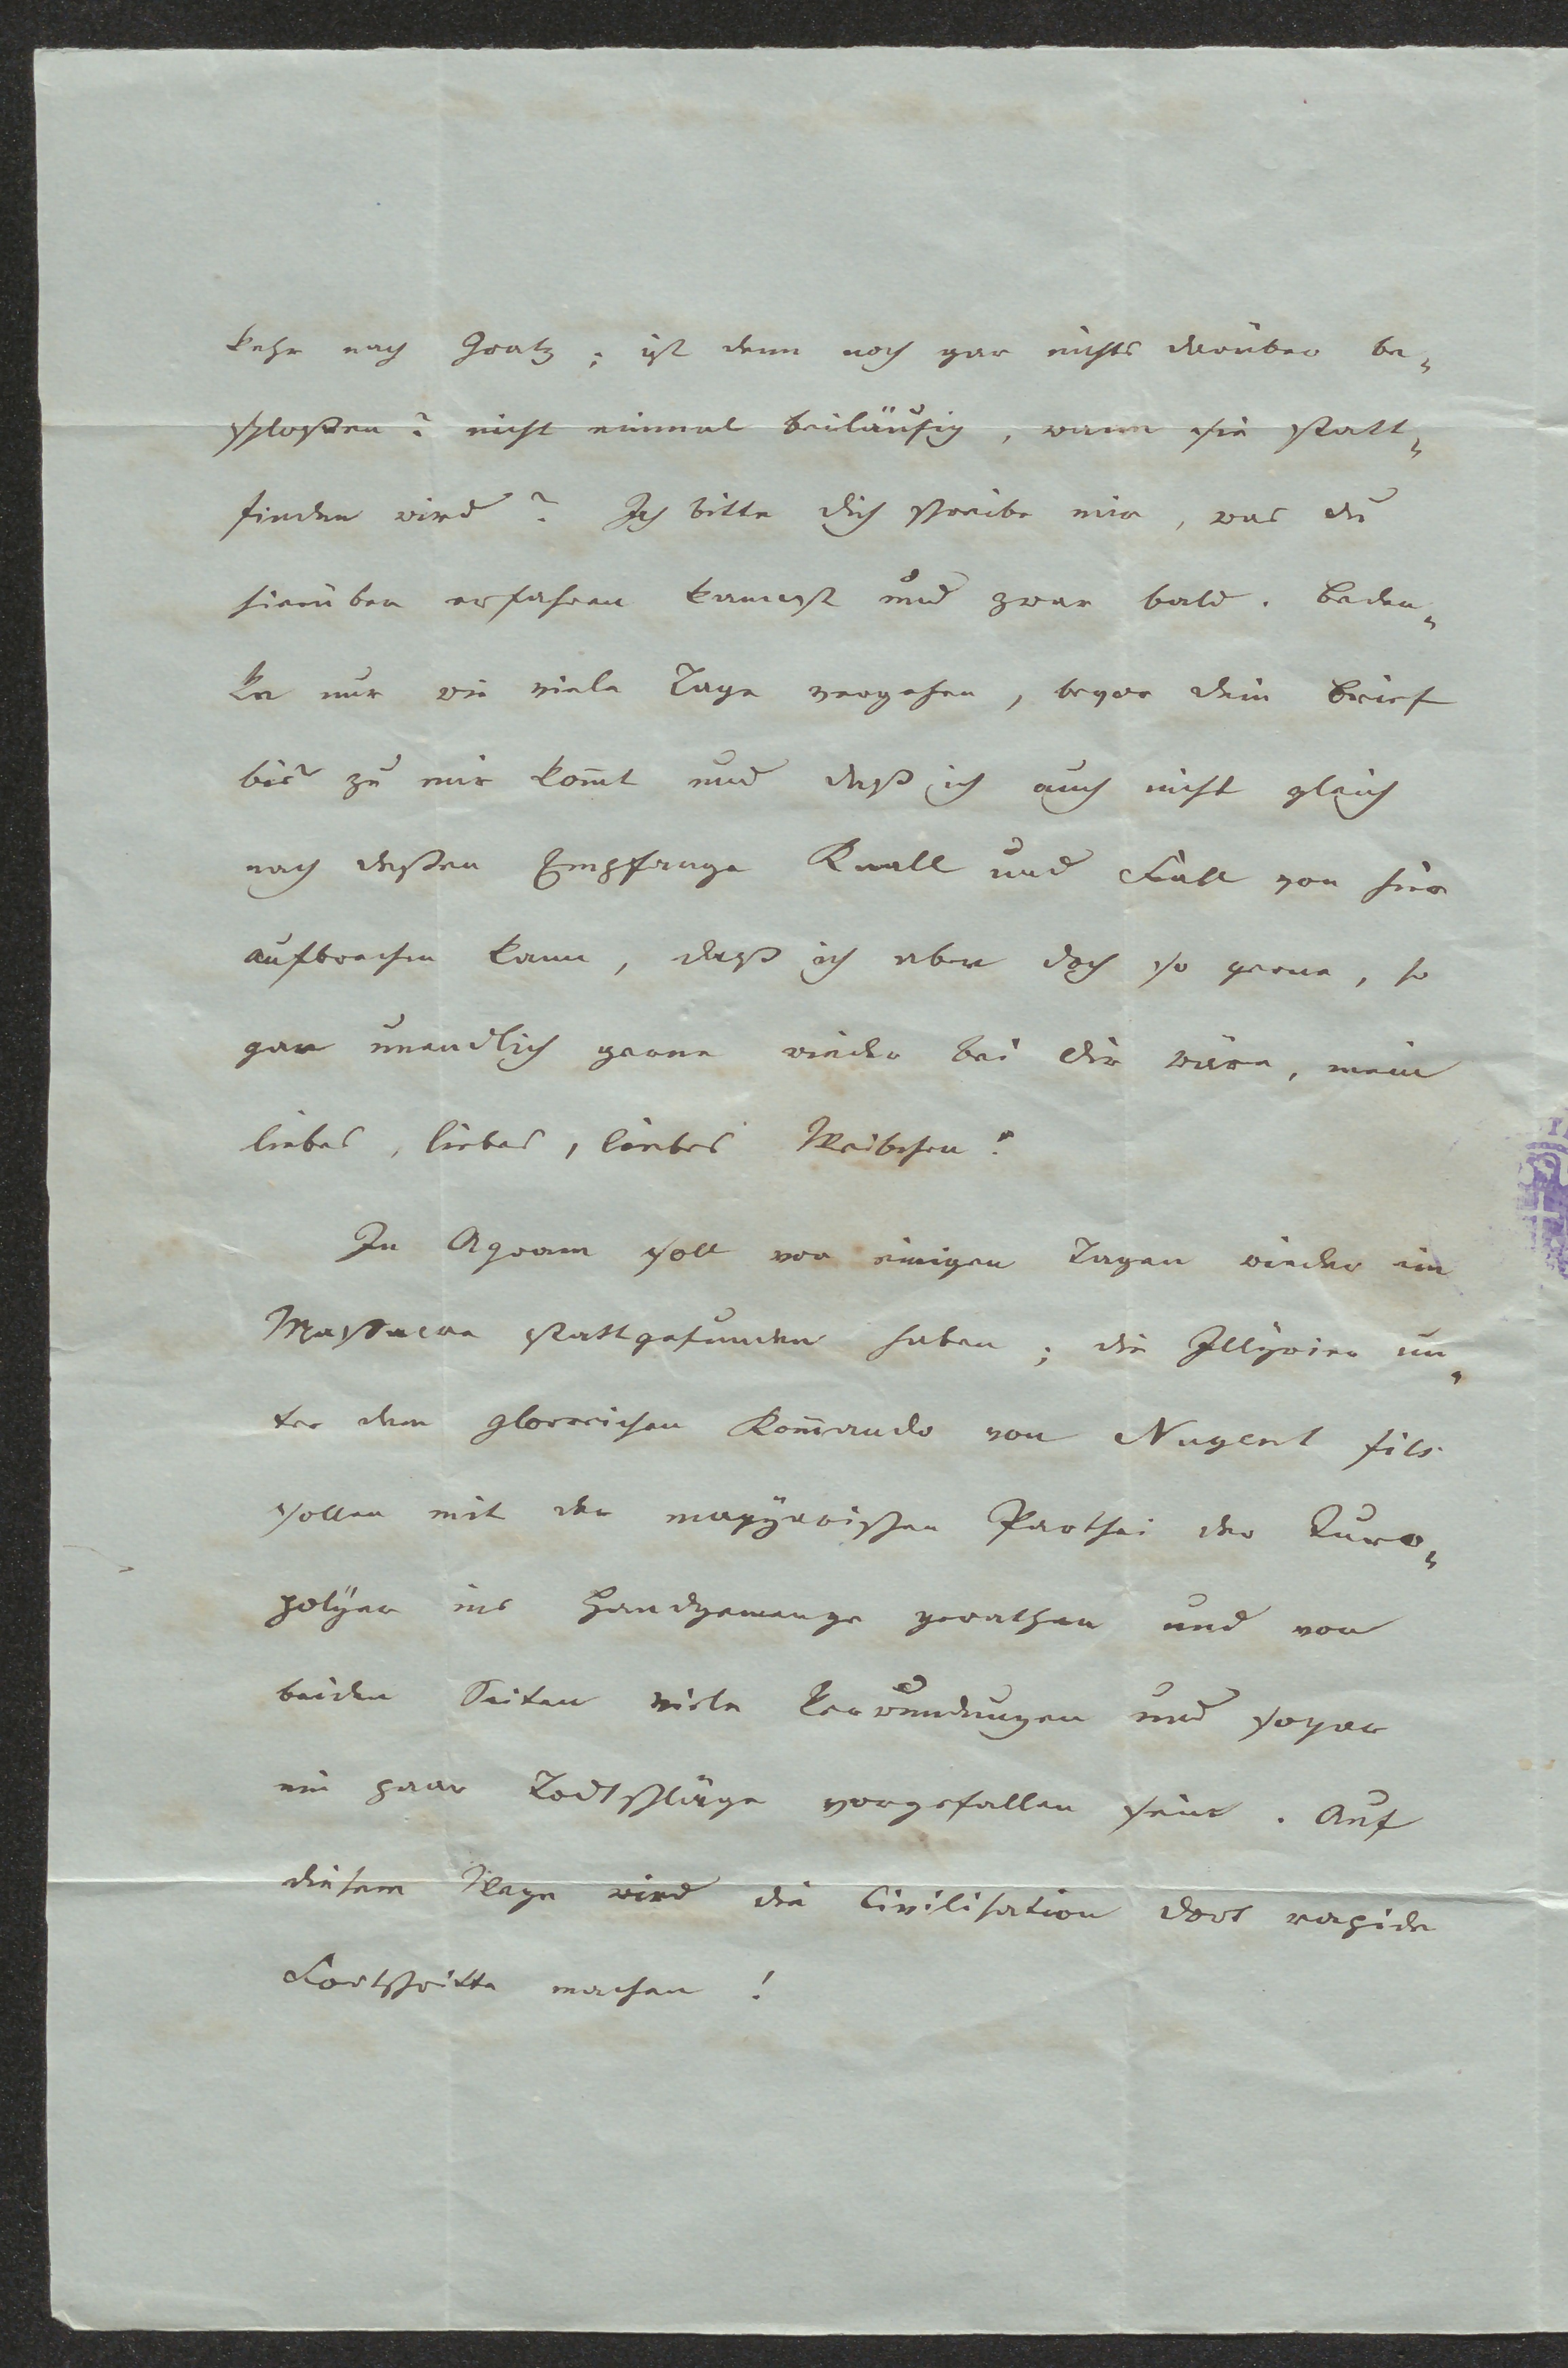 kehr nach Gratz; ist denn noch gar nichts darüber be„
schloßen? nicht einmal beiläufig, wann sie statt„
finden wird? Ich bitte dich schreibe mir, was du
hierüber erfahren kannst und zwar bald. Beden„
ke nur wie viele Tage vergehen, bevor dein Brief
bis zu mir kom̄t und daß ich auch nicht gleich
nach deßen Empfange Knall und Fall von hier
aufbrechen kann, daß ich aber doch so gerne, so
gar unendlich gerne wieder bei dir wäre, mein
liebes, liebes, liebes Weibchen!
In Agram soll vor einigen Tagen wieder ein
Massacre stattgefunden haben; die Illÿrier un„
ter dem glorreichen Kom̄ando von Nugent fils
sollen mit der magÿarischen Parthei der Turo„
polÿer ins Handgemenge gerathen und von
beiden Seiten viele Verwundungen und sogar
ein paar Todtschläge vorgefallen sein. Auf
diesem Wege wird die Civilisation dort rapide
Fortschritte machen!